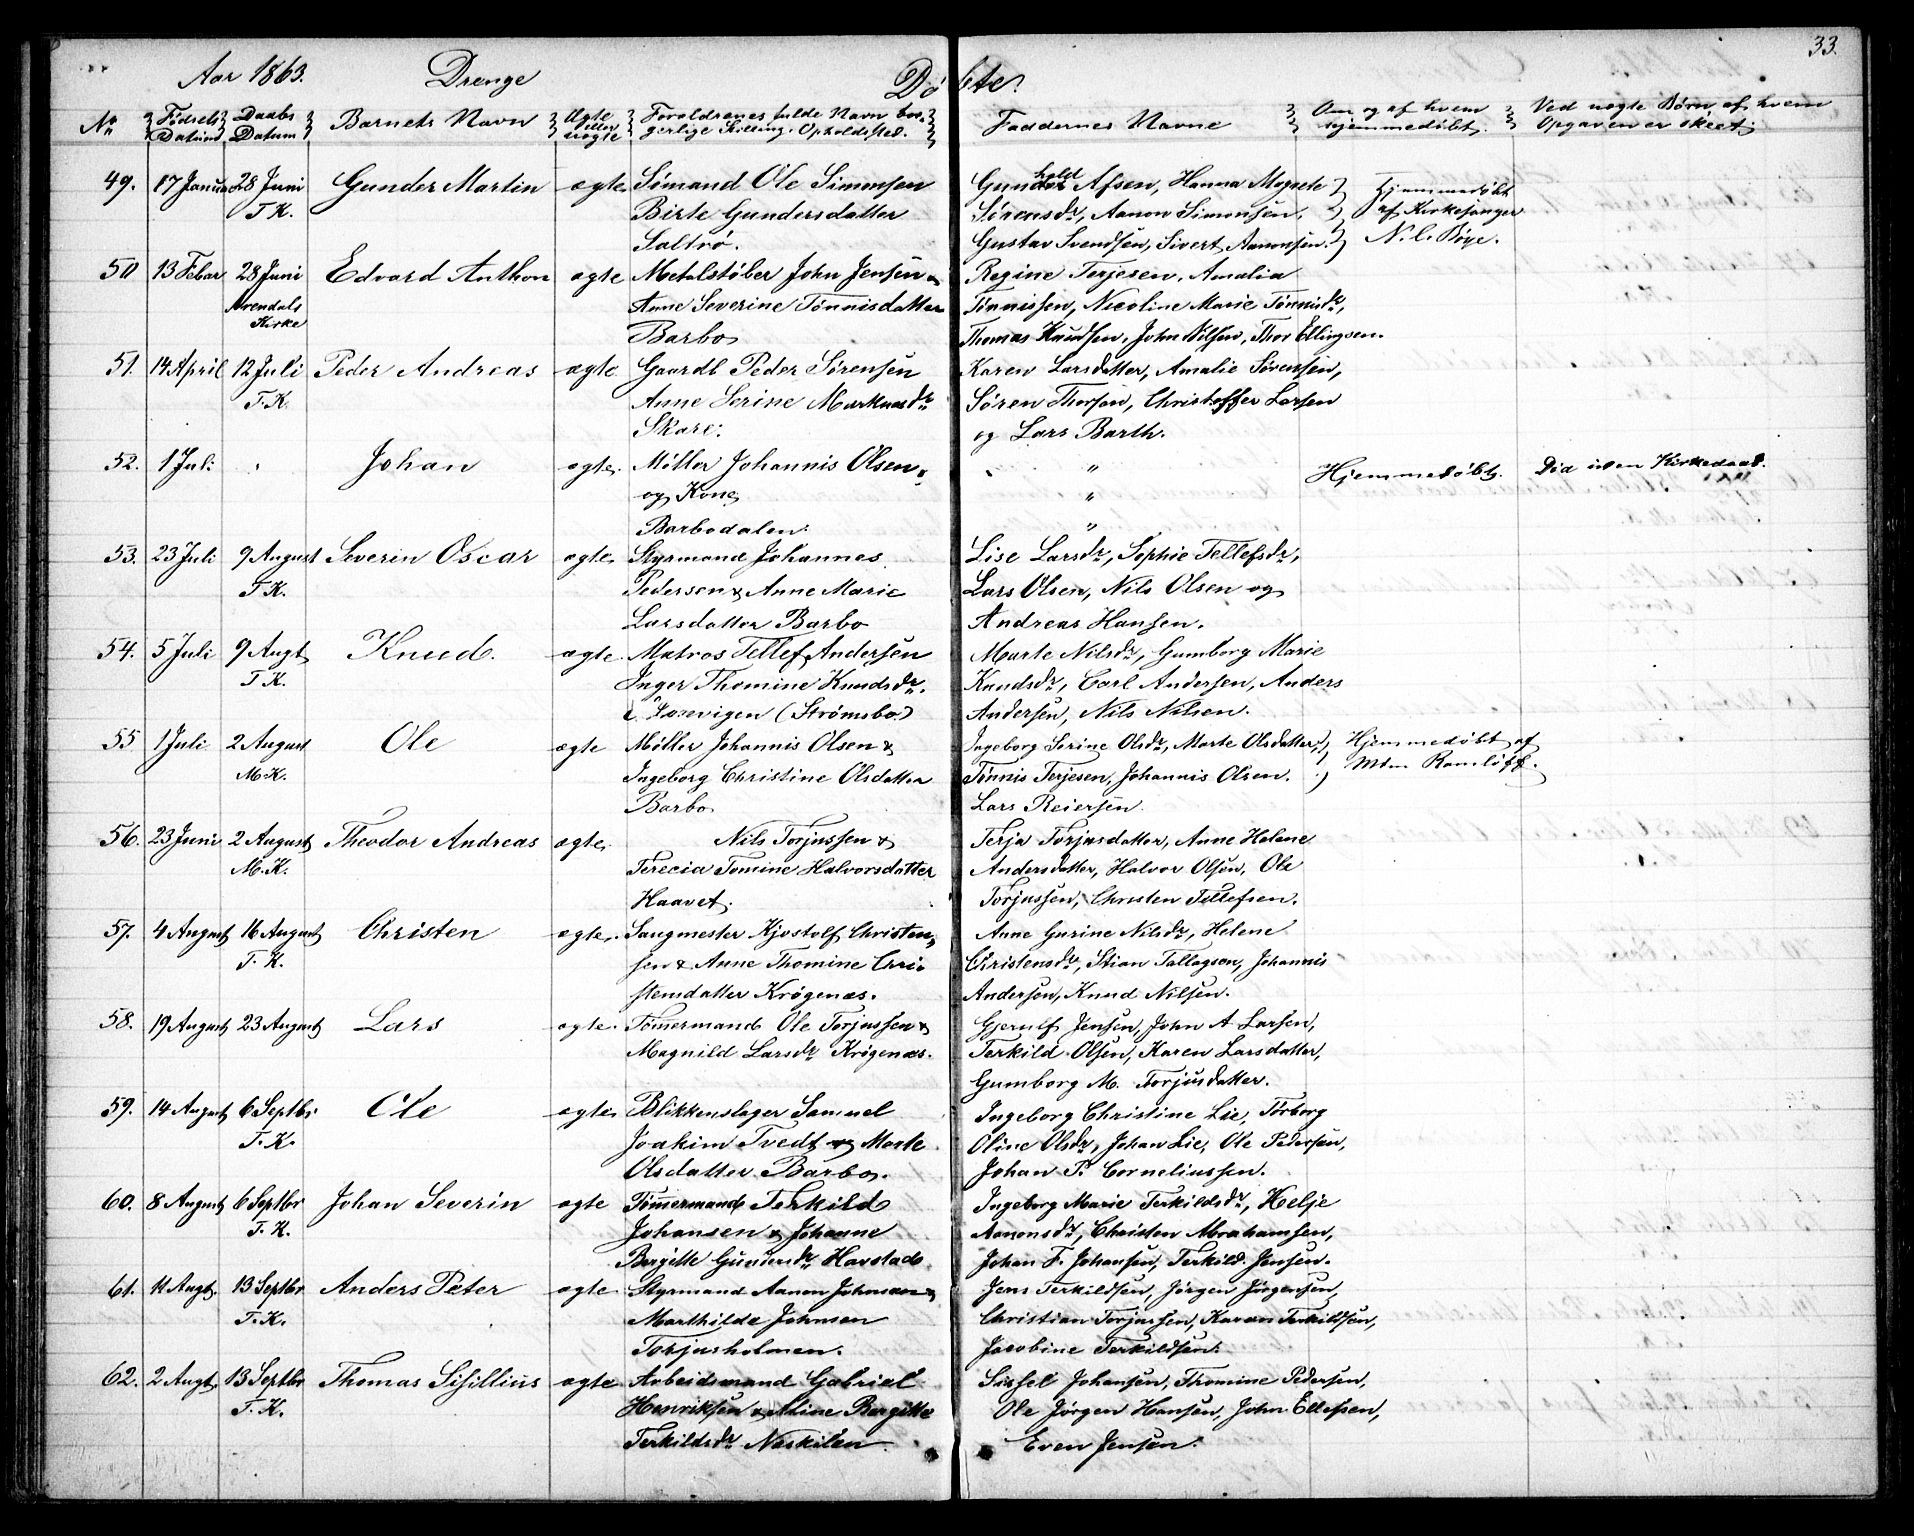 33.
Aar 1863. Drenge Døbte.
No Fødsels Datum Daabs Datum Barnets Navn Ægte eller uægte Forældrenes fulde Navn, borgerlige Stilling, Opholdsted. Faddernes Navne Om og af hvem hjemmedøbt. Ved uægte Børn, af hvem Opgaven er skeet.
49. 17 Januar 28 Juni Gunder Martin ægte Sømand Ole Simonsen Gunhild Assen, Hanna Magrete Hjemmedøbt
T.K. Birte Gundersdatter Sørensdr, Aanon Simonsen, af Kirkesanger
Saltrø. Gustav Svendsen, Sivert Aanonsen. N. C. Bøye.
50 13 Febar 28 Juni Edvard Anthon ægte Metalstøber John Jensen & Regine Terjesen, Amalia
Arendals Anne Severine Tønnisdatter Tønnissen, Nicoline Marie Tønnisdr,
Kirke Barbo Thomas Knudsen, John Nilsen, Thor Ellingsen.
51. 14 April 12 Juli Peder Andreas ægte Gaardb Peder Sørensen Karen Larsdatter, Amalie Sørensen,
T.K. Anne Serine Markusdr Søren Thorsen, Christoffer Larsen
Skare. og Lars Barth.
52. 1 Juli Johan ægte. Møller Johannis Olsen " Hjemmedøbt. Død uden Kirkedaab.
og Kone "
Barbodalen. "
53. 23 Juli 9 August Severin Oscar ægte Styrmand Johannes Lise Larsdr, Sophie Tellefsdr,
T.K. Pedersen & Anne Marie Lars Olsen, Nils Olsen og
Larsdatter Barbo Andreas Hansen.
54. 5 Juli 9 Augt Knud. ægte. Matros Tellef Andersen Marte Nilsdr, Gumborg Marie
T.K. Inger Thomine Knudsdr. Knudsdr, Carl Andersen, Anders
i (Strømsbo) Andersen, Nils Nilsen.
55 1 Juli 2 August Ole ægte Møller Johannis Olsen & Ingeborg Serine Olsdr, Marte Olsdatter, Hjemmedøbt af
M.K. Ingeborg Christine Olsdatter Tønnis Terjesen, Johannis Olsen. Mdm Ramløff.
Barbo Lars Reiersen.
56. 23 Juni 2 August Theodor Andreas ægte. Nils Torjussen & Terja Torjusdatter, Anne Helene
M.K. Terecia Tomine Halvorsdatter Andersdatter, Halvor Olsen, Ole
Haavet. Torjussen, Christen Tellefsen.
57. 4 August 16 August Christen ægte. Saugmester Kjøstolf Christen- Anne Gurine Nilsdr, Helene
T.K. sen & Anne Thomine Chri- Christensdr, Stian Tallagsen, Johannis
stensdatter Krøgenæs. Andersen, Knud Nilsen.
58. 19 August 23 August Lars ægte. Tømermand Ole Torjussen & Gjerulf Jensen, John A Larsen,
Magnild Larsdr Krøgenæs. Terkild Olsen, Karen Larsdatter,
Gumborg M. Torjusdatter.
59. 14 August 6 Septbr Ole ægte Blikkenslager Samuel Ingeborg Christine Lie, Torborg
T.K. Joakim Tvedt og Marte Oline Olsdr, Johan Lie, Ole Pedersen,
Olsdatter Barbo. Johan P. Corneliussen.
60. 8 August 6 Septbr Johan Severin ægte Tømermand Terkild Ingeborg Marie Terkildsdr, Helje
T.K. Johansen & Johanne Aanonsdr, Christen Abrahamsen,
Birgitte Gundersdr Havstad. Johan F. Johansen, Terkild Jensen.
61. 11 Augt. 13 Septbr Anders Peter ægte. Styrmand Aanon Johnsen & Jens Terkildsen, Jørgen Jørgensen,
T.K. Marthilde Johnsen Christian Torjussen, Karen Terkildsen,
Torjusholmen. Jacobine Terkildsen.
62. 2 Augt. 13 Septbr Thomas Sisillius ægte Arbeidsmand Gabriel Sissel Johansen, Thomine Pedersen,
T.K. Henriksen & Aline Bergitte Ole Jørgen Hansen, John Ellefsen,
Terkildsdr Neskilen. Even Jensen.